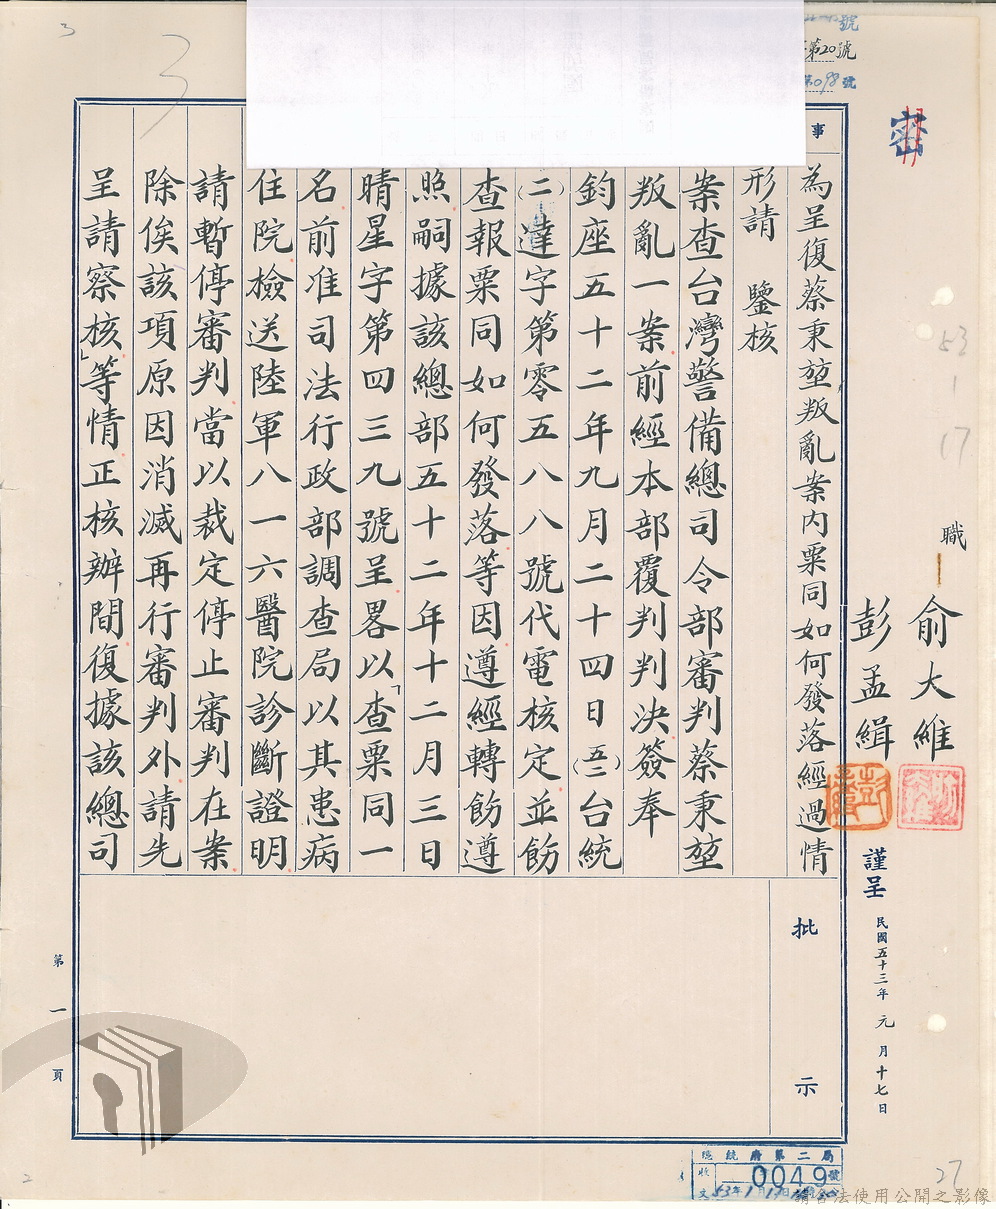 號
第20號
第098號
密
53
1
17
職
俞大維
彭孟緝
謹呈
民國五十三年元月十七日
事
為呈復蔡秉堃叛亂案內粟同如何發落經過情
形請 鑒核
案查台灣警備總司令部審判蔡秉堃
叛亂一案前經本部覆判判決簽奉
鈞座五十二年九月二十四日(五二)台統
(二)達字第零五八八號代電核定並飭
查報粟同如何發落等因遵經轉飭遵
照嗣據該總部五十二年十二月三日
晴星字第四三九號呈畧以「查粟同一
名前准司法行政部調查局以其患病
住院檢送陸軍八一六醫院診斷證明
請暫停審判當以裁定停止審判在案
除俟該項原因消滅再行審判外請先
呈請察核」等情正核辦間復據該總司
批示
第一頁
3
3
總統府第二局
收文
0049號
53年1月17日
27
2
請合法使用公開之影像